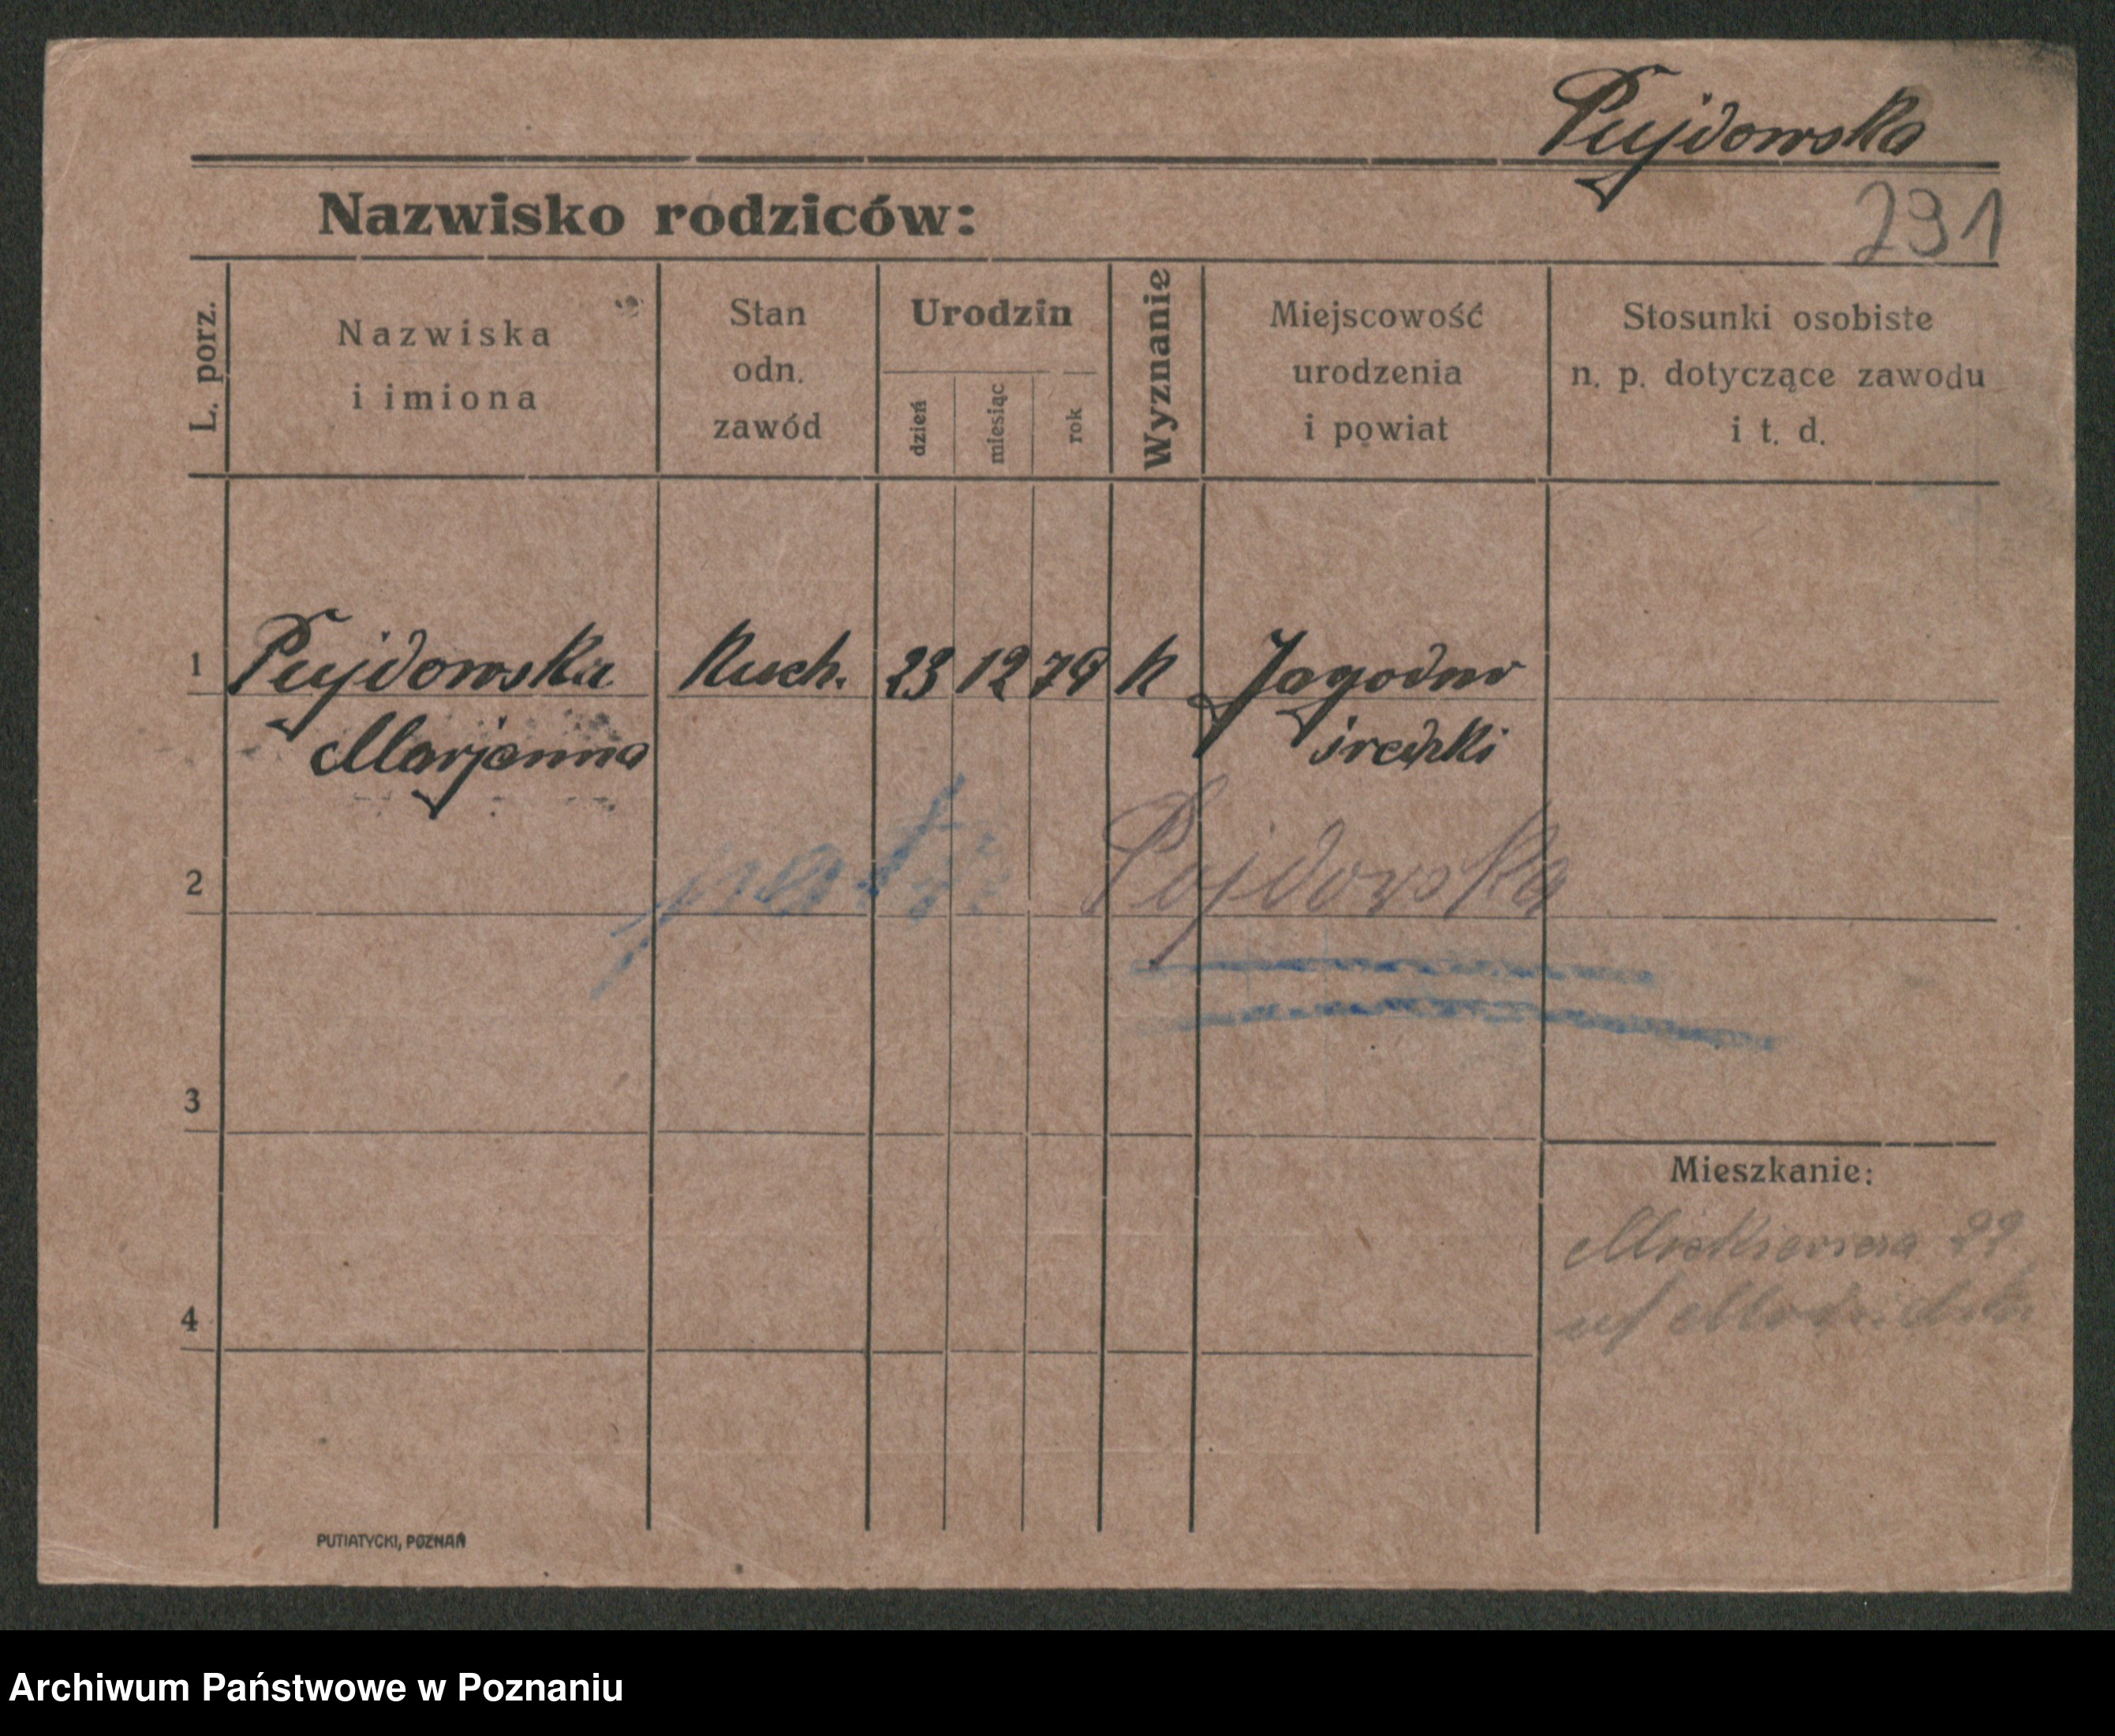 Pujdowska
Nazwisko rodziców:
291
L. porz.
Nazwiska
i imiona
Stan
odn.
zawód
Urodzin
dzień
miesiąc
rok
Wyznanie
Miejscowość
urodzenia
i powiat
Stosunki osobiste
n. p. dotyczące zawodu
i t. d.
1 Pujdowska Kuch. 23 12 79 k Jagodno
Marjanna
2 Pojdowska
3
Mieszkanie:
Mickiewicza 22
4
PUTIATYCKI, POZNAŃ
Archiwum Państwowe w Poznaniu